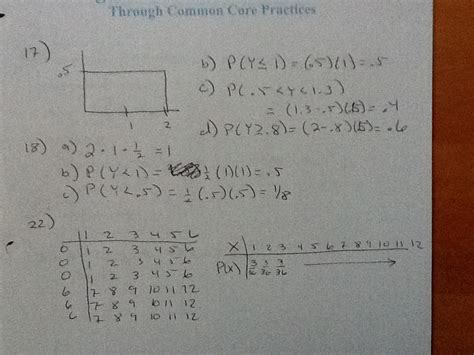 Through Common Core Practices
17)
.5
1 2
b) P(Y ≤ 1) = (.5)(1) = .5
c) P(.5 < Y < 1.3)
= (1.3-.5)(.5) = .4
d) P(Y ≥ .8) = (2-.8)(.5) = .6
18) a) 2 · 1 · 1/2 = 1
b) P(Y < 1) = 1/2 (1)(1) = .5
c) P(Y < .5) = 1/2 (.5)(.5) = 1/8
22)
1 2 3 4 5 6
0 1 2 3 4 5 6
0 1 2 3 4 5 6
0 1 2 3 4 5 6
6 7 8 9 10 11 12
6 7 8 9 10 11 12
6 7 8 9 10 11 12
X 1 2 3 4 5 6 7 8 9 10 11 12
P(X) 3/36 3/36 3/36